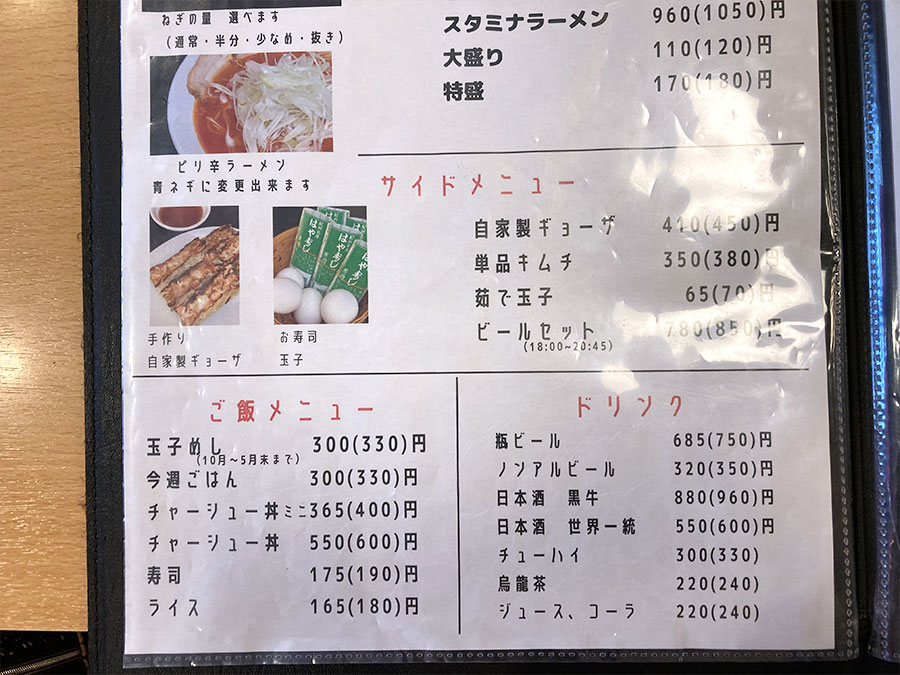 ねぎの量　選べます
(通常・半分・少なめ・抜き)
ピリ辛ラーメン
青ネギに変更出来ます
スタミナラーメン 960(1050)円
大盛り 110(120)円
特盛 170(180)円
サイドメニュー
自家製ギョーザ 410(450)円
単品キムチ 350(380)円
茹で玉子 65(70)円
ビールセット 780(850)円
(18:00~20:45)
はやずし
手作り
自家製ギョーザ
お寿司
玉子
ご飯メニュー
玉子めし 300(330)円
(10月～5月末まで)
今週ごはん 300(330)円
チャーシュー丼ミニ 365(400)円
チャーシュー丼 550(600)円
寿司 175(190)円
ライス 165(180)円
ドリンク
瓶ビール 685(750)円
ノンアルビール 320(350)円
日本酒　黒牛 880(960)円
日本酒　世界一統 550(600)円
チューハイ 300(330)
烏龍茶 220(240)
ジュース、コーラ 220(240)